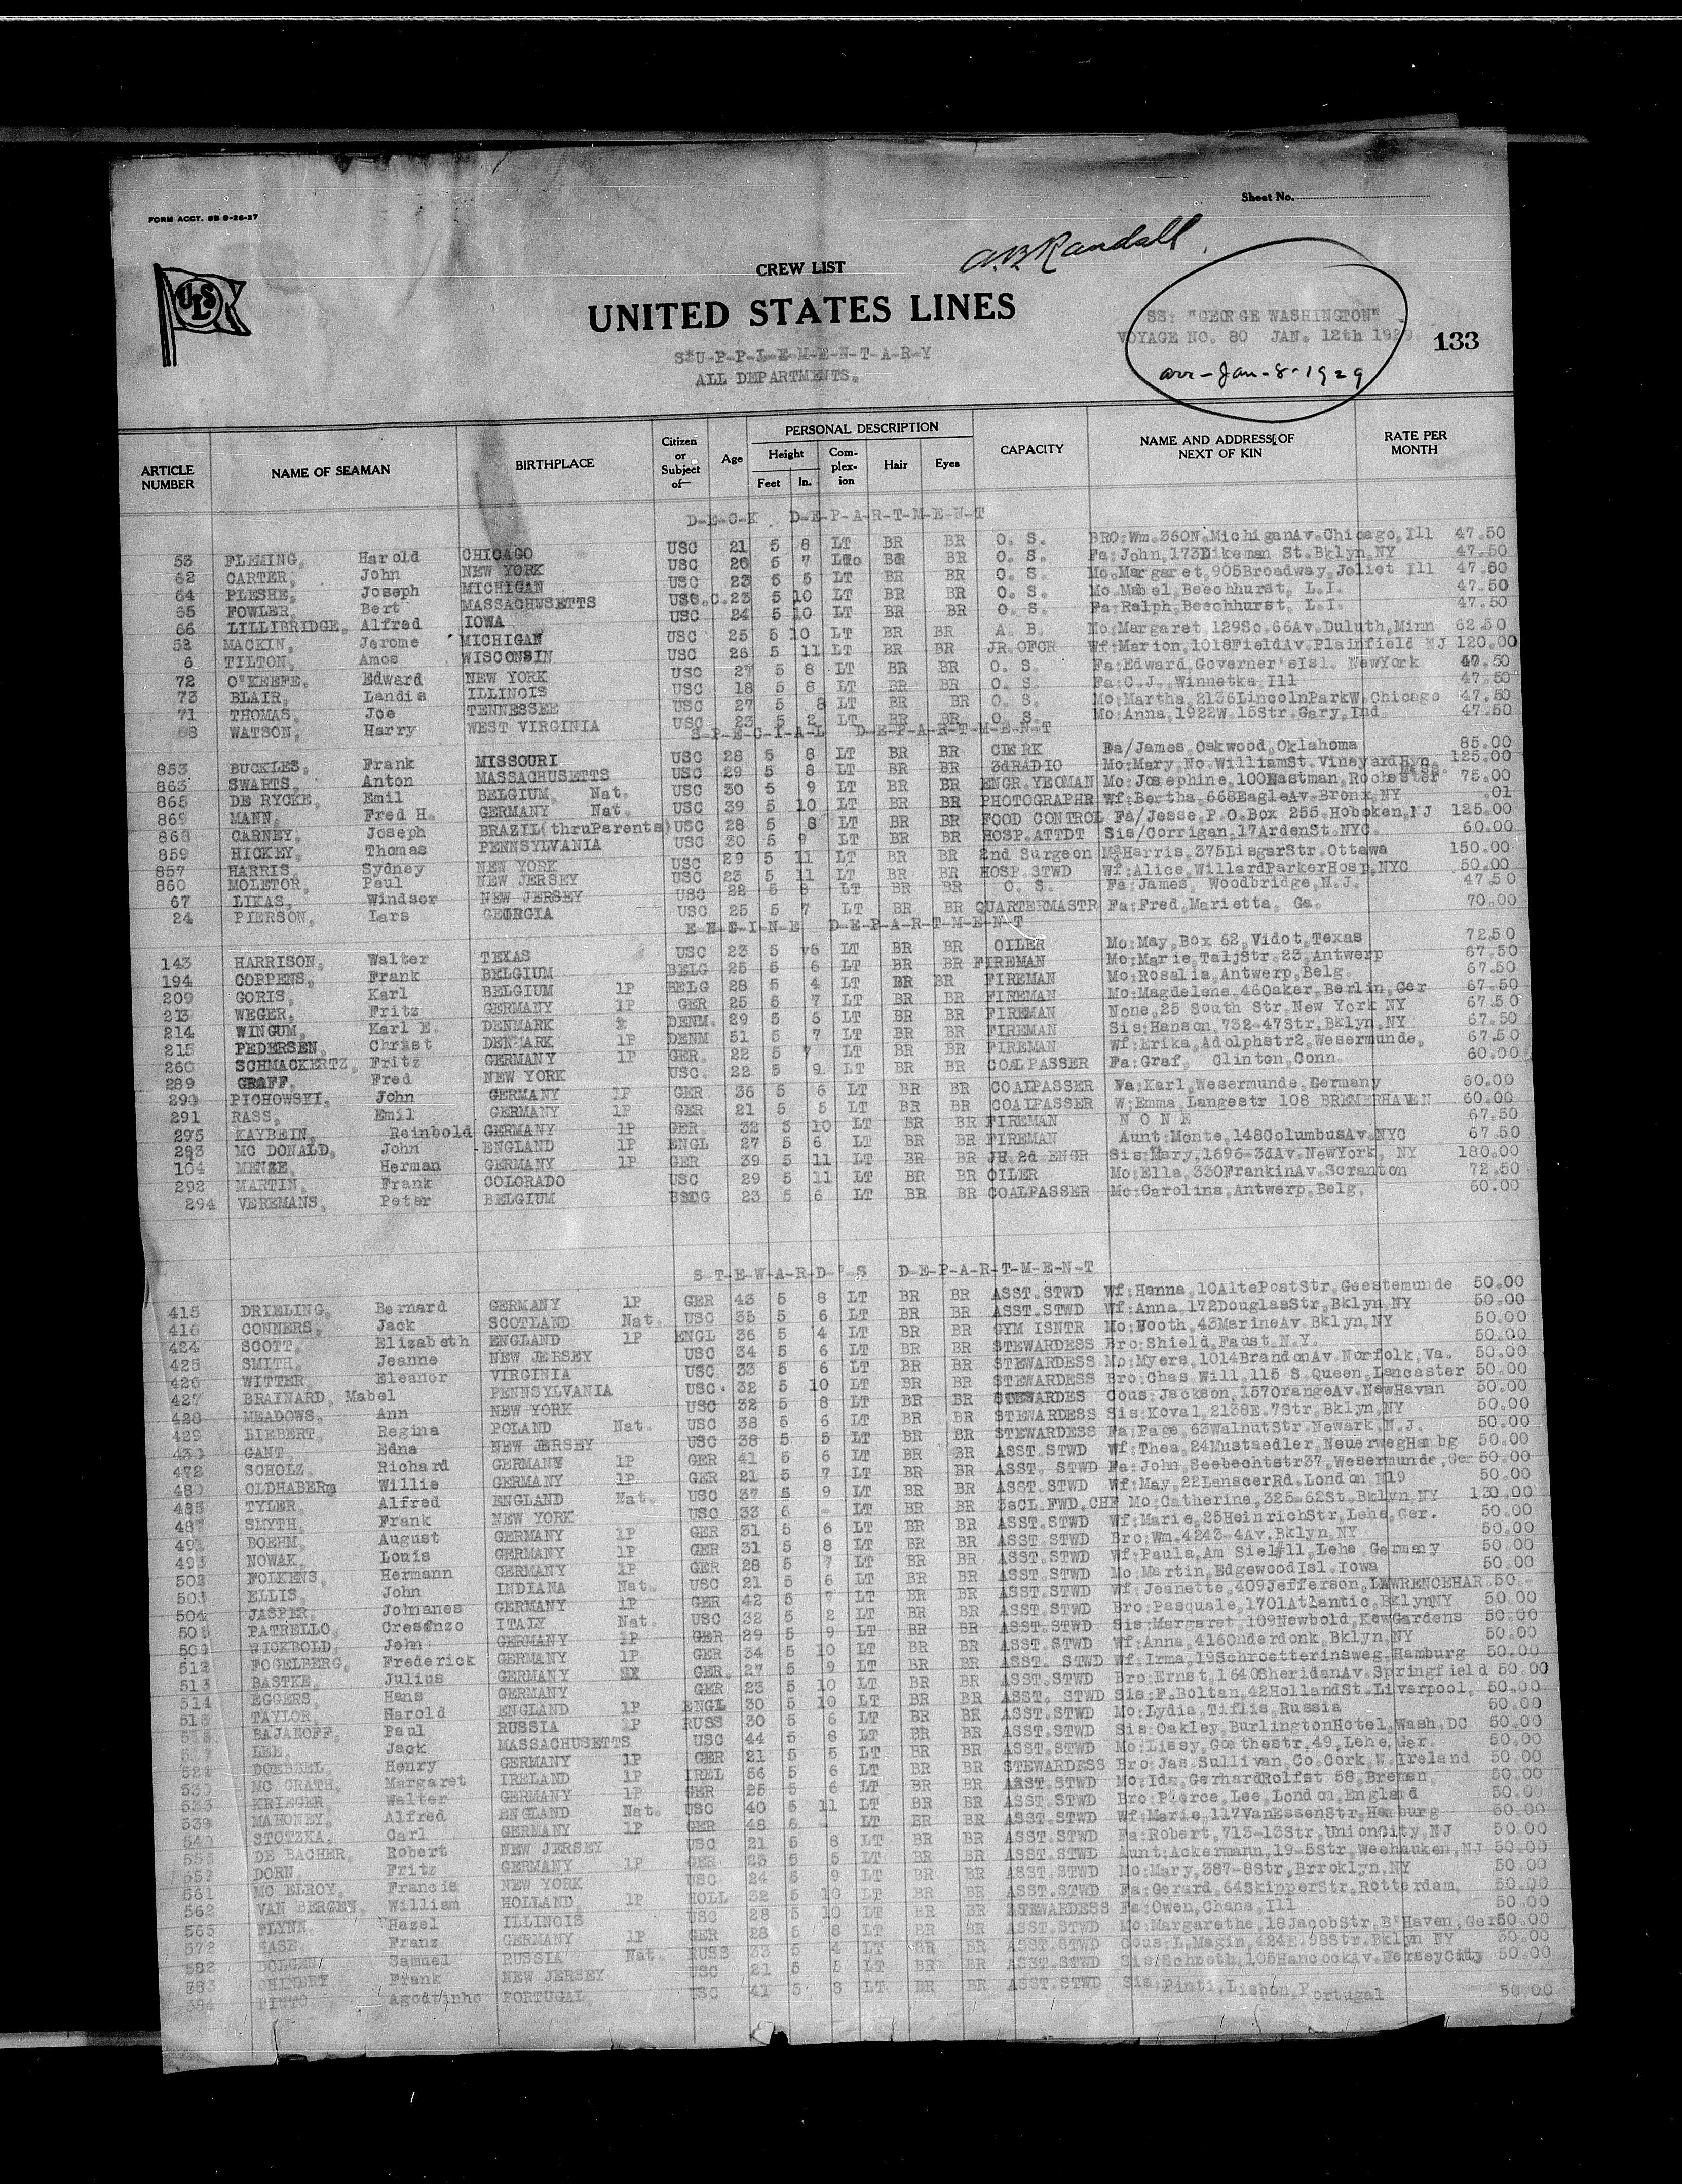 Sheet No.
FORM ACCT. 5B 9-26-27
A.B. Randall
ULS
CREW LIST
UNITED STATES LINES
SS: "GEORGE WASHINGTON"
VOYAGE NO. 80 JAN. 12th 1929.
133
S-U-P-P-L-E-M-E-N-T-A-R-Y
ALL DEPARTMENTS.
arr-Jan-8-1929
ARTICLE NUMBER NAME OF SEAMAN BIRTHPLACE Citizen or Subject of— Age PERSONAL DESCRIPTION Height Feet In. Complexion Hair Eyes CAPACITY NAME AND ADDRESS OF NEXT OF KIN RATE PER MONTH
D-E-C-K D-E-P-A-R-T-M-E-N-T
53 FLEMING, Harold CHICAGO USC 21 5 8 LT BR BR O. S. BRO:Wm.360N.MichiganAv.Chicago,Ill 47.50
62 CARTER, John NEW YORK USC 26 5 7 LT BR BR O. S. Fa:John,173Dikeman St.Bklyn,NY 47.50
64 PLESHE, Joseph MICHIGAN USC 23 5 5 LT BR BR O. S. Mo.Margaret,905Broadway,Joliet Ill 47.50
65 FOWLER, Bert MASSACHUSETTS USC 23 5 10 LT BR BR O. S. Mo.Mabel,Beechhurst, L.I. 47.50
66 LILLIBRIDGE, Alfred IOWA USC 24 5 10 LT BR BR O. S. Fa:Ralph,Beechhurst, L.I. 47.50
52 MACKIN, Jerome MICHIGAN USC 25 5 10 LT BR BR A. B. Mo:Margaret,129So.66Av.Duluth,Minn 62.50
6 TILTON, Amos WISCONSIN USC 26 5 11 LT BR BR JR.OFCR Wf:Marion,1018FieldAv.Plainfield NJ 120.00
72 O'KEEFE, Edward NEW YORK USC 27 5 8 LT BR BR O. S. Fa:Edward,Governer'sIsl. NewYork 47.50
73 BLAIR, Landis ILLINOIS USC 18 5 8 LT BR BR O. S. Fa:C.J. Winnetka,Ill 47.50
71 THOMAS, Joe TENNESSEE USC 27 5 8 LT BR BR O. S. Mo:Martha,2136LincolnParkW.Chicago 47.50
68 WATSON, Harry WEST VIRGINIA USC 23 5 2 LT BR BR O. S. Mo:Anna,1922W.15Str.Gary,Ind 47.50
S-P-E-C-I-A-L D-E-P-A-R-T-M-E-N-T
853 BUCKLES, Frank MISSOURI USC 28 5 8 LT BR BR CLERK Fa/James,Oakwood,Oklahoma 85.00
863 SWARTS, Anton MASSACHUSETTS USC 29 5 8 LT BR BR 3dRADIO Mo:Mary,No.WilliamSt.Vineyard 125.00
865 DE RYCKE, Emil BELGIUM, Nat. USC 30 5 9 LT BR BR ENGR.YEOMAN Mo:Josephine,100Eastman,Rochester 75.00
869 MANN, Fred H. GERMANY Nat. USC 39 5 10 LT BR BR PHOTOGRAPHR Wf:Bertha,668EagleAv.Bronx,NY .01
868 CARNEY, Joseph BRAZIL(thruParents) USC 28 5 8 LT BR BR FOOD CONTROL Fa/Jesse,P.O.Box 255.Hoboken,NJ 125.00
859 HICKEY, Thomas PENNSYLVANIA USC 30 5 9 LT BR BR HOSP.ATTDT Sis/Corrigan,17ArdenSt.NYC. 60.00
857 HARRIS, Sydney NEW YORK USC 29 5 11 LT BR BR 2nd Surgeon Harris,375LisgarStr.Ottawa 150.00
860 MOLETOR, Paul NEW JERSEY USC 23 5 11 LT BR BR HOSP.STWD Wf:Alice,WillardParkerHosp,NYC 50.00
67 LIKAS, Windsor NEW JERSEY USC 22 5 8 LT BR BR O. S. Fa:James, Woodbridge,N.J. 47.50
24 PIERSON, Lars GEORGIA USC 25 5 7 LT BR BR QUARTERMASTR Fa:Fred,Marietta, Ga. 70.00
E-N-G-I-N-E D-E-P-A-R-T-M-E-N-T
143 HARRISON, Walter TEXAS USC 23 5 6 LT BR BR OILER Mo:May,Box 62,Vidot,Texas 72.50
194 COPPENS, Frank BELGIUM BELG 25 5 6 LT BR BR FIREMAN Mo:Marie,TaljStr.23,Antwerp 67.50
209 GORIS, Karl BELGIUM 1P BELG 28 5 4 LT BR BR FIREMAN Mo:Rosalia,Antwerp,Belg. 67.50
213 WEGER, Fritz GERMANY 1P GER 25 5 7 LT BR BR FIREMAN Mo:Magdelene,46Oaker,Berlin,Ger 67.50
214 WINGUM, Karl E. DENMARK DENM. 29 5 6 LT BR BR FIREMAN None,25 South Str,New York NY 67.50
215 PEDERSEN, Christ DENMARK 1P DENM 51 5 7 LT BR BR FIREMAN Sis:Hanson,732-47Str,Bklyn,NY 67.50
260 SCHMACKERTZ, Fritz GERMANY 1P GER. 22 5 7 LT BR BR FIREMAN Wf:Erika,Adolphstr2,Wesermunde, 67.50
289 GRAFF, Fred NEW YORK USC. 22 5 9 LT BR BR COALPASSER Fa:Graf, Clinton,Conn. 60.00
290 PICHOWSKI, John GERMANY 1P GER 36 5 6 LT BR BR COALPASSER Fa:Karl,Wesermunde,Germany 60.00
291 RASS, Emil GERMANY 1P GER 21 5 5 LT BR BR COALPASSER W;Emma,Langestr 108 BREMERHAVEN 60.00
295 KAYBEIN, Reinbold GERMANY 1P GER. 32 5 10 LT BR BR FIREMAN N O N E 67.50
293 MC DONALD, John ENGLAND 1P ENGL 27 5 6 LT BR BR FIREMAN Aunt:Monte,148ColumbusAv.NYC 67.50
104 MENZE, Herman GERMANY 1P GER 39 5 11 LT BR BR JR.2d ENGR Sis:Mary,1696-3dAv.NewYork, NY 180.00
292 MARTIN, Frank COLORADO USC 29 5 11 LT BR BR OILER Mo:Ella,330FrankinAv.Scranton 72.50
294 VEREMANS, Peter BELGIUM 23 5 6 LT BR BR COALPASSER Mo:Carolina,Antwerp,Belg. 60.00
S-T-E-W-A-R-D-'-S D-E-P-A-R-T-M-E-N-T
415 DRIELING, Bernard GERMANY 1P GER 43 5 8 LT BR BR ASST.STWD Wf:Hanna,10AltePostStr,Geestemunde 50.00
416 CONNERS, Jack SCOTLAND Nat. USC 35 5 6 LT BR BR ASST.STWD Wf:Anna,172DouglasStr,Bklyn,NY 50.00
424 SCOTT, Elizabeth ENGLAND 1P ENGL 36 5 4 LT BR BR GYM ISNTR Mo:Booth,43MarineAv.Bklyn,NY 50.00
425 SMITH, Jeanne NEW JERSEY USC 34 5 6 LT BR BR STEWARDESS Bro:Shield,Faust,N.Y. 50.00
426 WITTER, Eleanor VIRGINIA USC 33 5 6 LT BR BR STEWARDESS Mo:Myers,1014BrandonAv.Norfolk,Va. 50.00
427 BRAINARD, Mabel PENNSYLVANIA USC. 32 5 10 LT BR BR STEWARDESS Bro:Chas Will,115 S.Queen,Lancaster 50.00
428 MEADOWS, Ann NEW YORK USC 32 5 8 LT BR BR STEWARDES Cous:Jackson,157OrangeAv.NewHavan 50.00
429 LIEBERT, Regina POLAND Nat. USC 38 5 6 LT BR BR STEWARDESS Sis:Koval,2138E.7Str,Bklyn,NY 50.00
430 GANT, Edna NEW JERSEY USC 38 5 5 LT BR BR STEWARDESS Fa:Page,63WalnutStr.Newark,N.J. 50.00
472 SCHOLZ, Richard GERMANY 1P GER 41 5 6 LT BR BR ASST.STWD Wf:Thea,24Mustaedler,NeuerwegHambg 50.00
480 OLDHABERm Willie GERMANY 1P GER 21 5 7 LT BR BR ASST. STWD Fa:John,Seebechtstr37,Wesermunde,Ger 50.00
485 TYLER, Alfred ENGLAND Nat. USC 37 5 9 LT BR BR ASST.STWD Wf:May,22LanscerRd.London N19 50.00
487 SMYTH, Frank NEW YORK USC 33 6 - LT BR BR 3sCL.FWD.CHF Mo:Catherine,325-62St.Bklyn,NY 130.00
BOEHM, August GERMANY 1P GER 31 5 6 LT BR BR ASST.STWD Wf:Marie,25HeinrichStr,Lehe,Ger. 50.00
493 NOWAK, Louis GERMANY 1P GER 31 5 8 LT BR BR ASST.STWD Bro:Wm.4243-4Av.Bklyn,NY 50.00
502 FOLKENS, Hermann GERMANY 1P GER 28 5 7 LT BR BR ASST.STWD Wf:Paula,Am Siel#11,Lehe Germany 50.00
503 ELLIS, John INDIANA Nat. USC 21 5 6 LT BR BR ASST.STWD Mo:Martin,EdgewoodIsl.Iowa 50.00
504 JASPER, Johnanes GERMANY 1P GER 42 5 7 LT BR BR ASST.STWD Wf:Jeanette,409Jefferson,LAWRENCEHAR 50.-
PATRELLO, Cresenzo ITALY Nat. USC 32 5 2 LT BR BR ASST.STWD Bro:Pasquale,1701Atlantic,BklynNY 50.00
509 WICKBOLD, John GERMANY 1P GER 29 5 9 LT BR BR ASST.STWD Sis:Margaret,109Newbold,KewGardens 50.00
512 FOGELBERG, Frederick GERMANY 1P GER 34 5 10 LT BR BR ASST.STWD Wf:Anna,416Onderdonk,Bklyn,NY 50.00
513 BASTKE, Julius GERMANY GER. 27 5 9 LT BR BR ASST. STWD Wf:Irma,19Schroetterinsweg,Hamburg 50.00
514 EGGERS, Hans GERMANY GER 23 5 10 LT BR BR ASST.STWD Bro:Ernst,1640SheridanAv.Springfield 50.00
515 TAYLOR, Harold ENGLAND 1P ENGL 30 5 10 LT BR BR ASST. STWD Sis:F.Boltan,42HollandSt.Liverpool, 50.00
BAJANOFF, Paul RUSSIA 1P RUSS 30 5 6 LT BR BR ASST.STWD Mo:Lydia,Tiflis,Russia 50.00
LEE, Jack MASSACHUSETTS USC 44 5 8 LT BR BR ASST.STWD Sis:Oakley,BurlingtonHotel,Wash.DC 50.00
DOEBBEL, Henry GERMANY 1P GER 21 5 5 LT BR BR ASST.STWD Mo:Lissy,Goethestr.49,Lehe,Ger. 50.00
530 MC GRATH, Margaret IRELAND 1P IREL 56 5 6 LT BR BR STEWARDESS Bro:Jas.Sullivan,Co.Cork,W.Ireland 50.00
533 KRIEGER, Walter GERMANY 1P GER 25 5 6 LT BR BR ASST.STWD Mo:Ida,GerhardRolfst 58,Bremen, 50.00
539 MAHONEY, Alfred ENGLAND Nat. USC 40 5 11 LT BR BR ASST.STWD Bro:Pierce,Lee,London,England 50.00
540 STOTZKA, Carl GERMANY 1P GER 48 6 - LT BR BR ASST.STWD Wf:Marie,117VanEssenStr,Hamburg 50.00
553 DE BACHER, Robert NEW JERSEY USC 21 5 8 LT BR BR ASST.STWD Fa:Robert,713-13Str,UnionCity,NJ 50.00
559 DORN, Fritz GERMANY 1P GER 23 5 5 LT BR BR ASST.STWD Aunt:Ackermann,19-5Str,Weehauken,NJ 50.00
561 MC ELROY, Francis NEW YORK USC 24 5 9 LT BR BR ASST.STWD Mo:Mary,387-8Str,Brrooklyn,NY 50.00
562 VAN BERGEN, William HOLLAND 1P HOLL 32 5 10 LT BR BR ASST.STWD Fa:Gerard,64SkipperStr,Rotterdam, 50.00
565 FLYNN, Hazel ILLINOIS USC 28 5 10 LT BR BR STEWARDESS Fa:Owen,Chana,Ill 50.00
572 HASE, Franz GERMANY 1P GER 28 5 8 LT BR BR ASST.STWD Mo:Margarethe,18JacobStr,B'Haven,Ger 50.00
582 DOLGEN, Samuel RUSSIA Nat. RUSS 33 5 4 LT BR BR ASST.STWD Cous:L.Magin,424E.98Str.Bklyn NY 50.00
583 CHINERY Frank NEW JERSEY USC 21 5 5 LT BR BR ASST.STWD Sis/Schroth,105HancockAv. 50.00
594 PINTO Agodtinho PORTUGAL USC 41 5 8 LT BR BR ASST.STWD Sis:Pinti,Lisbon,Portugal 50.00